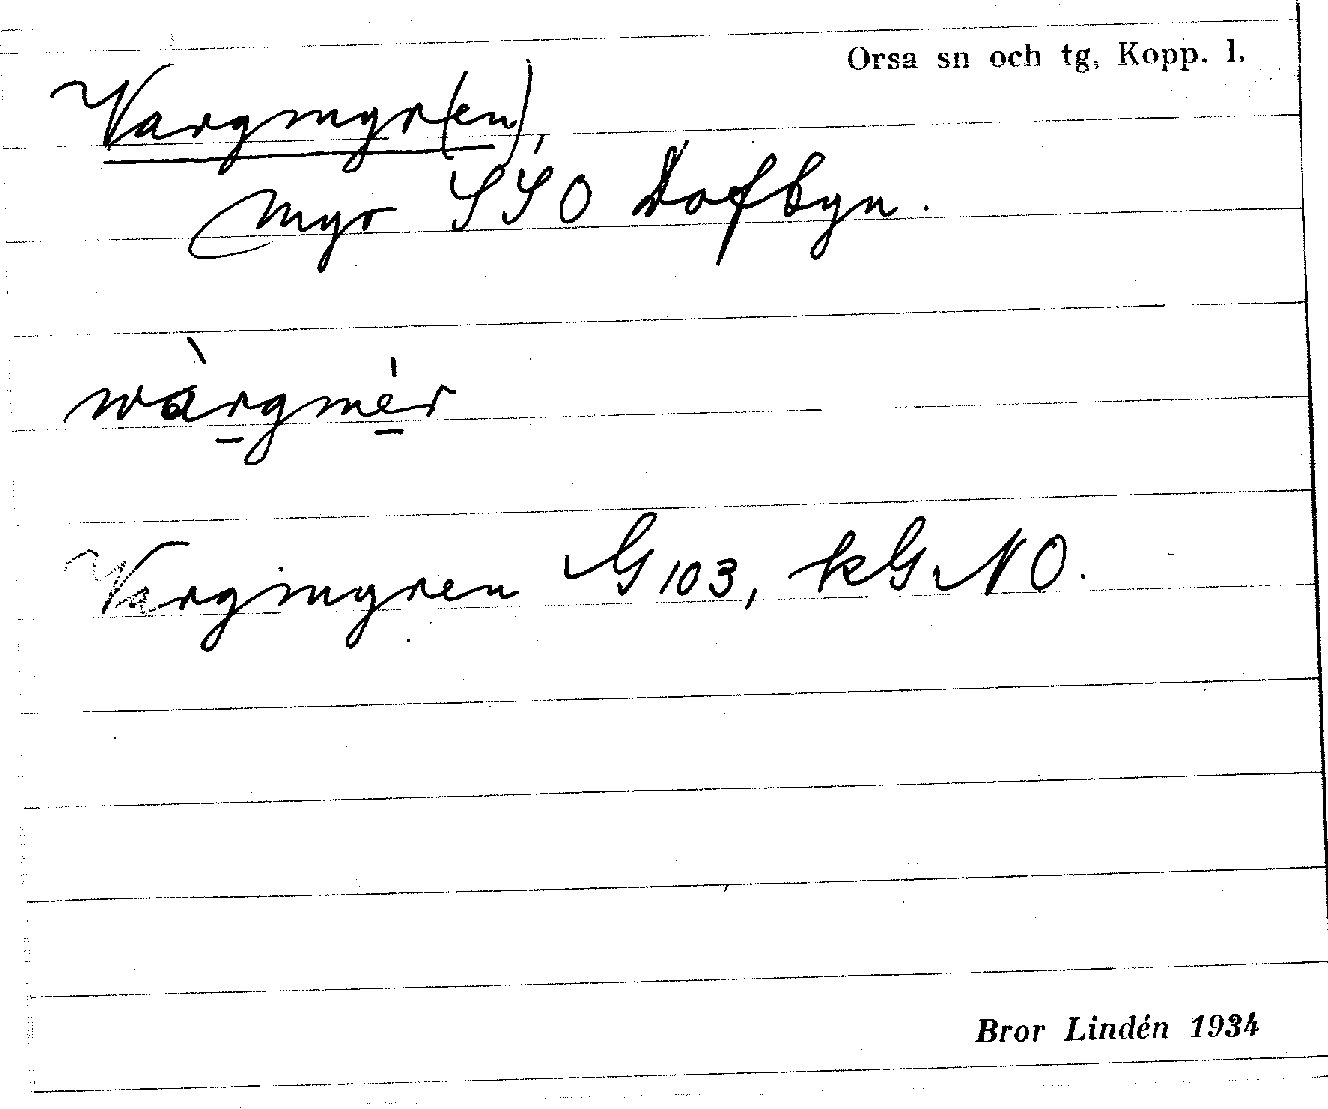 Orsa sn och tg, Kopp. l.
Vargmyr(en),
Myr SSO Dofbyn.
wàrgmér
Vargmyren G103, kG NO.
Bror Lindén 1934